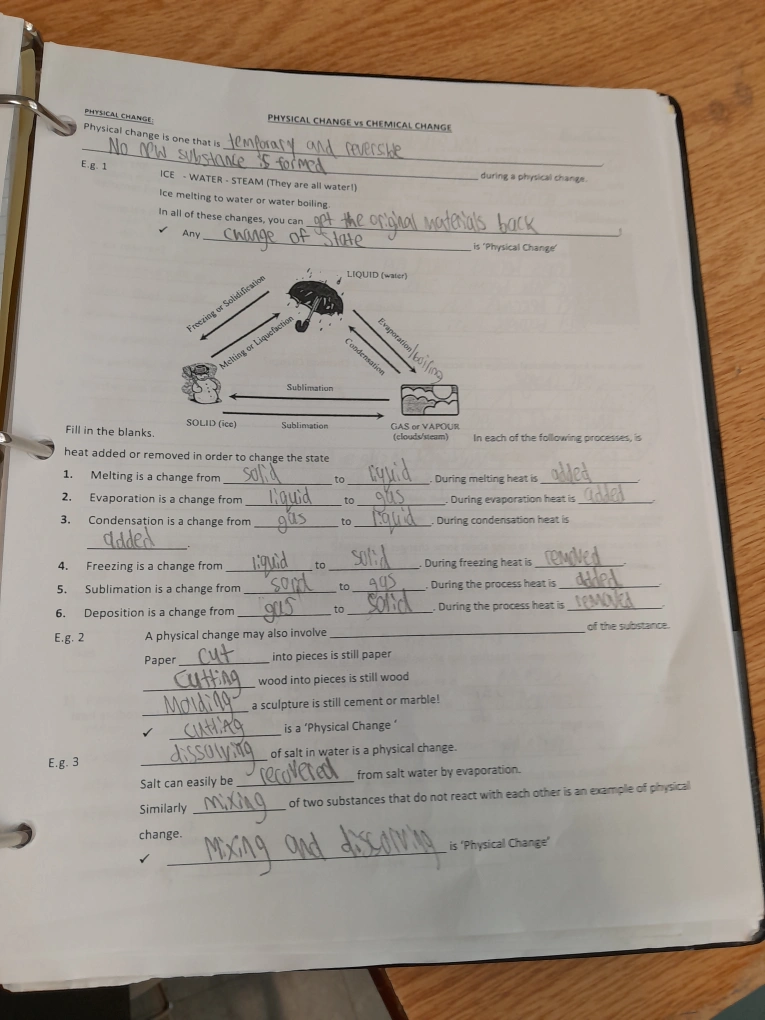 PHYSICAL CHANGE vs CHEMICAL CHANGE
PHYSICAL CHANGE:
Physical change is one that is temporary and reversible
No new substance is formed during a physical change.
E.g. 1 ICE - WATER - STEAM (They are all water!)
Ice melting to water or water boiling.
In all of these changes, you can get the original materials back.
✓ Any change of state is 'Physical Change'
LIQUID (water)
Freezing or Solidification
Melting or Liquefaction
Evaporation/boiling
Condensation
Sublimation
SOLID (ice)
Sublimation
GAS or VAPOUR
(clouds/steam)
Fill in the blanks. In each of the following processes, is
heat added or removed in order to change the state
1. Melting is a change from solid to liquid. During melting heat is added.
2. Evaporation is a change from liquid to gas. During evaporation heat is added.
3. Condensation is a change from gas to liquid. During condensation heat is
added.
4. Freezing is a change from liquid to solid. During freezing heat is removed.
5. Sublimation is a change from to gas. During the process heat is added.
6. Deposition is a change from gas to solid. During the process heat is removed.
E.g. 2 A physical change may also involve ____ of the substance.
Paper cut into pieces is still paper
Cutting wood into pieces is still wood
Molding a sculpture is still cement or marble!
✓ cutting is a 'Physical Change '
E.g. 3 dissolving of salt in water is a physical change.
Salt can easily be recovered from salt water by evaporation.
Similarly mixing of two substances that do not react with each other is an example of physical
change.
✓ Mixing and dissolving is 'Physical Change'